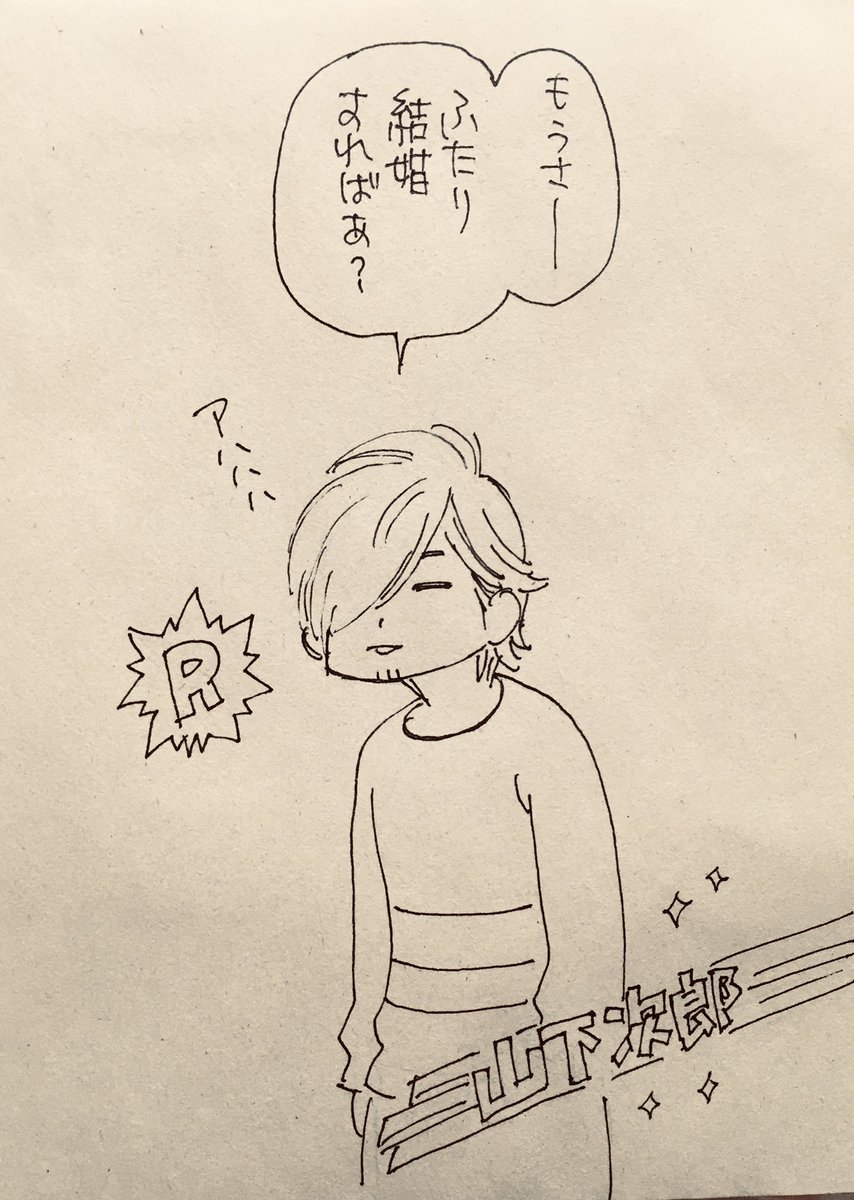 もうさー
ふたり
結婚
すればぁ?
アハハハ
R
山下次郎